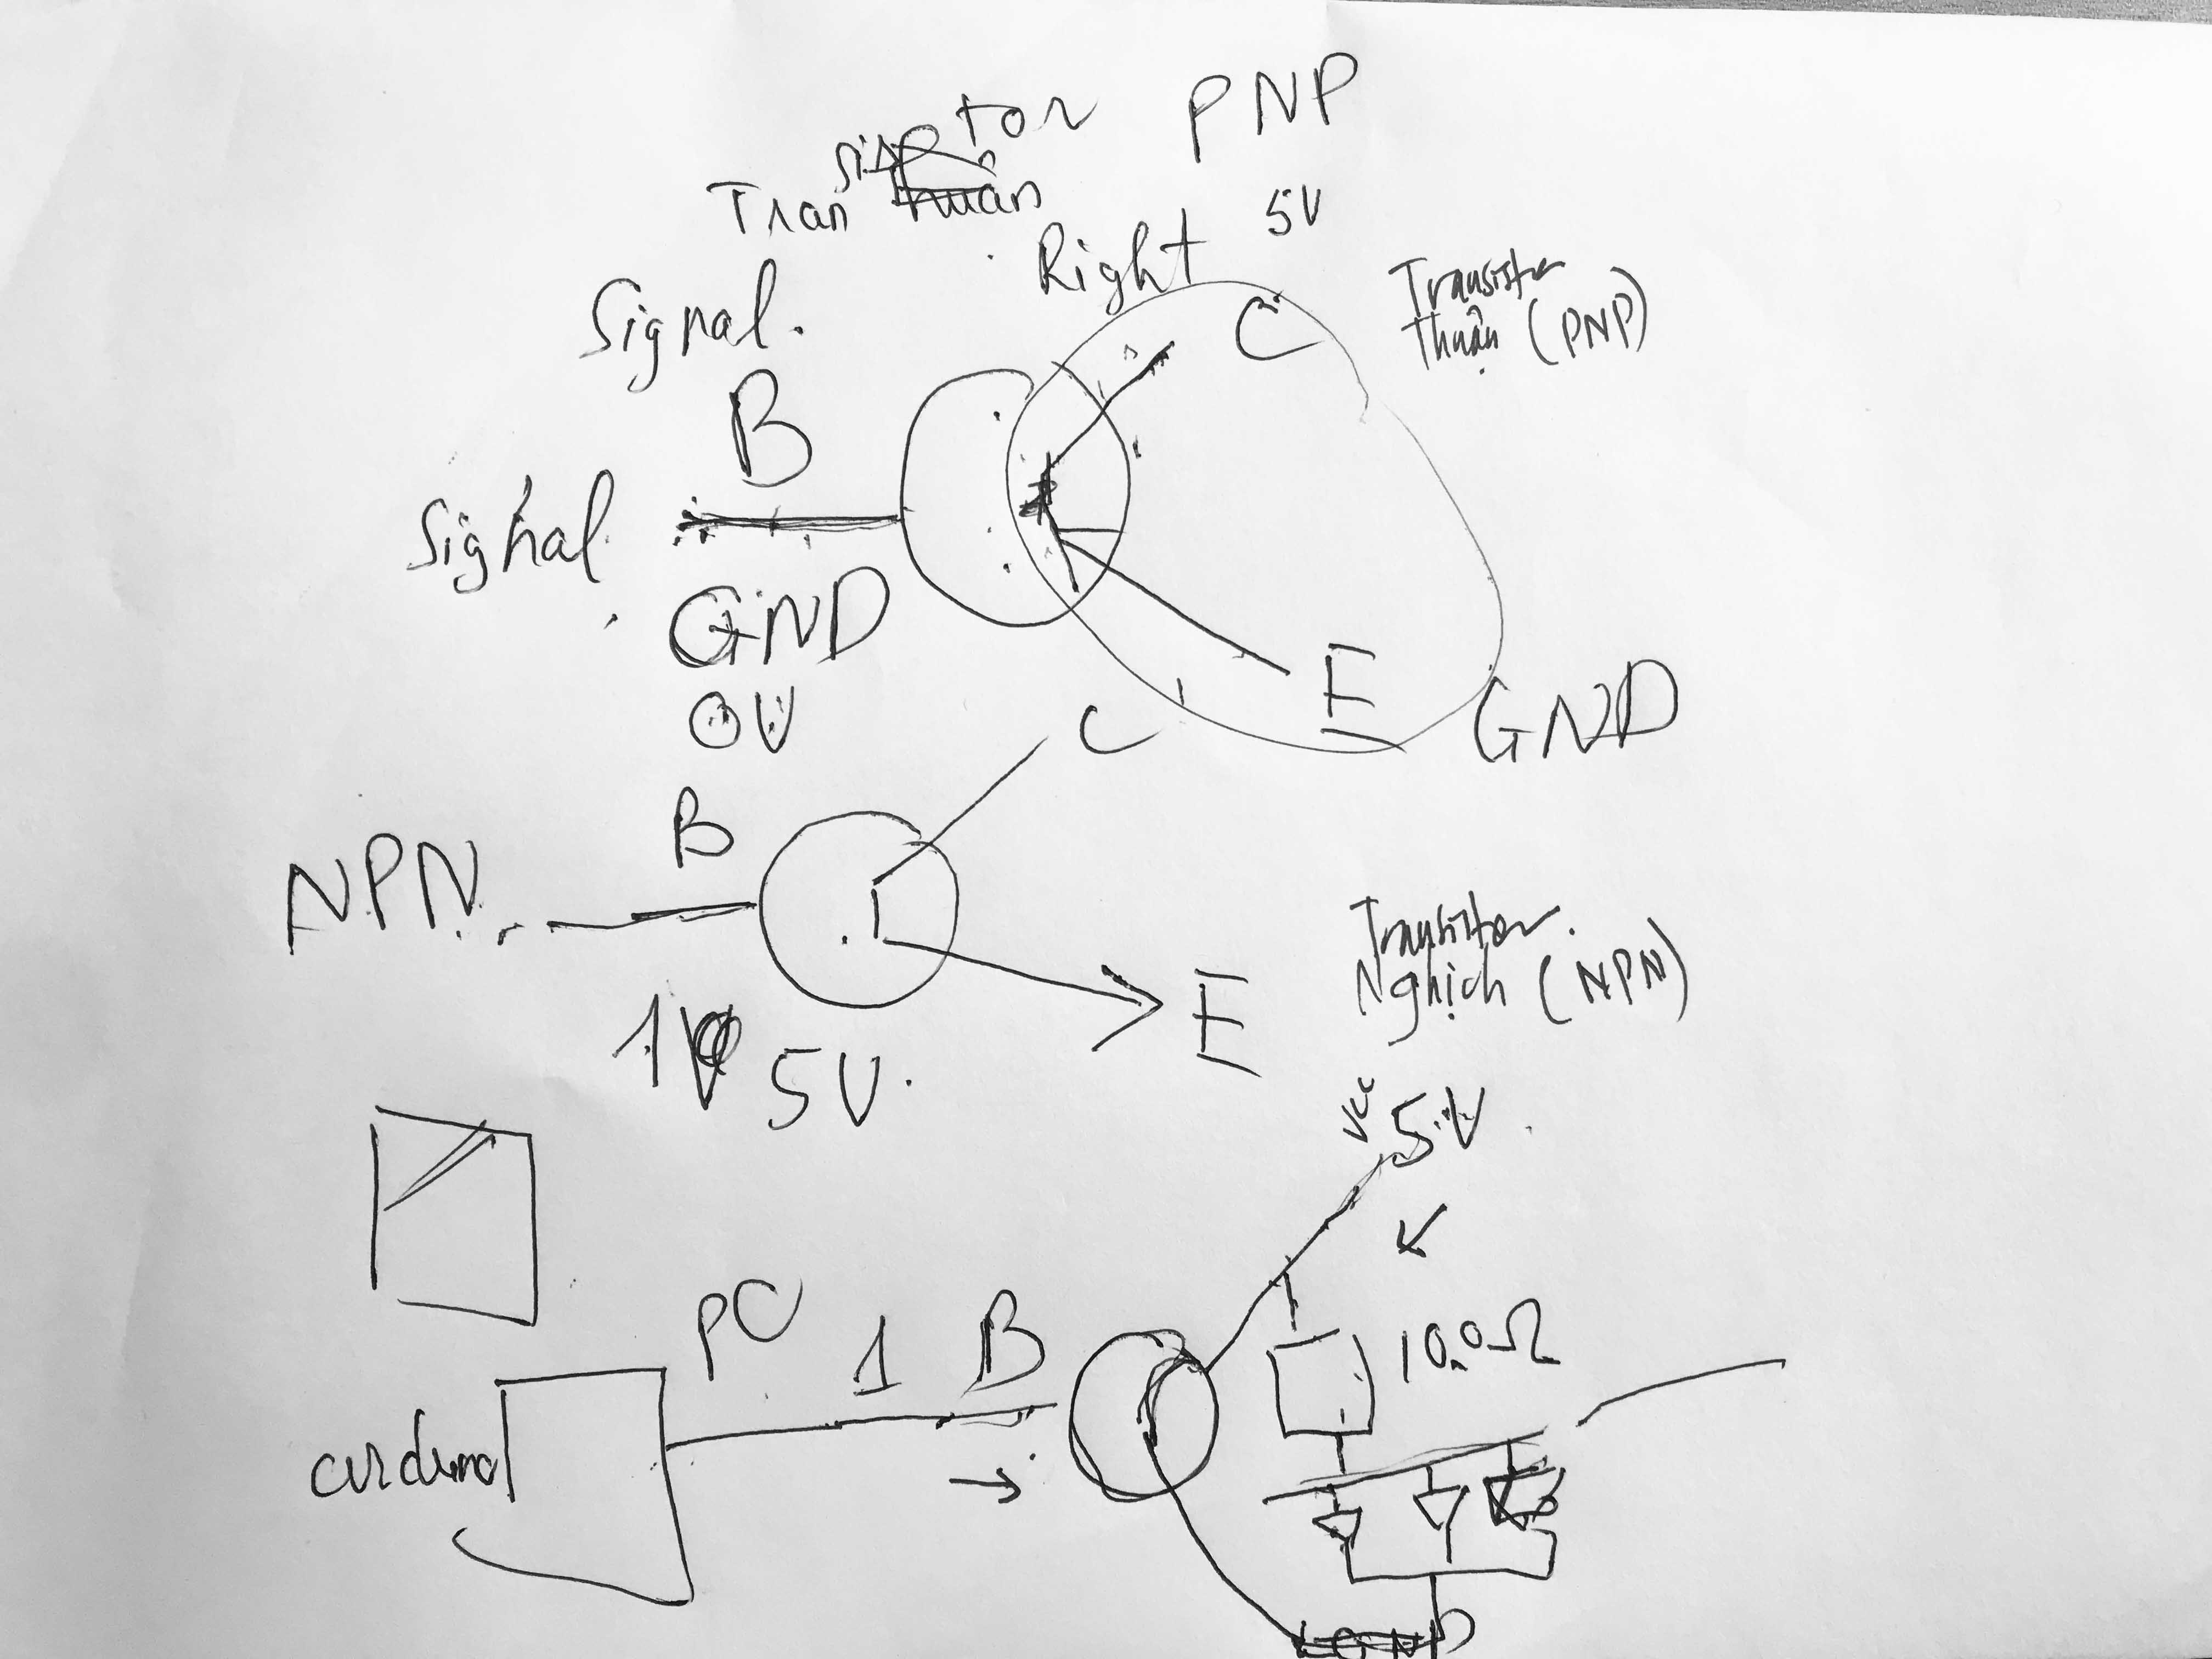 Transistor PNP
Right 5V
Signal.
C
Transistor
Thuận (PNP)
B
Signal
GND
0V
E
GND
C
B
NPN
Transistor
Nghịch (NPN)
E
1
5V
5V
PC
1
B
100Ω
arduno
GND